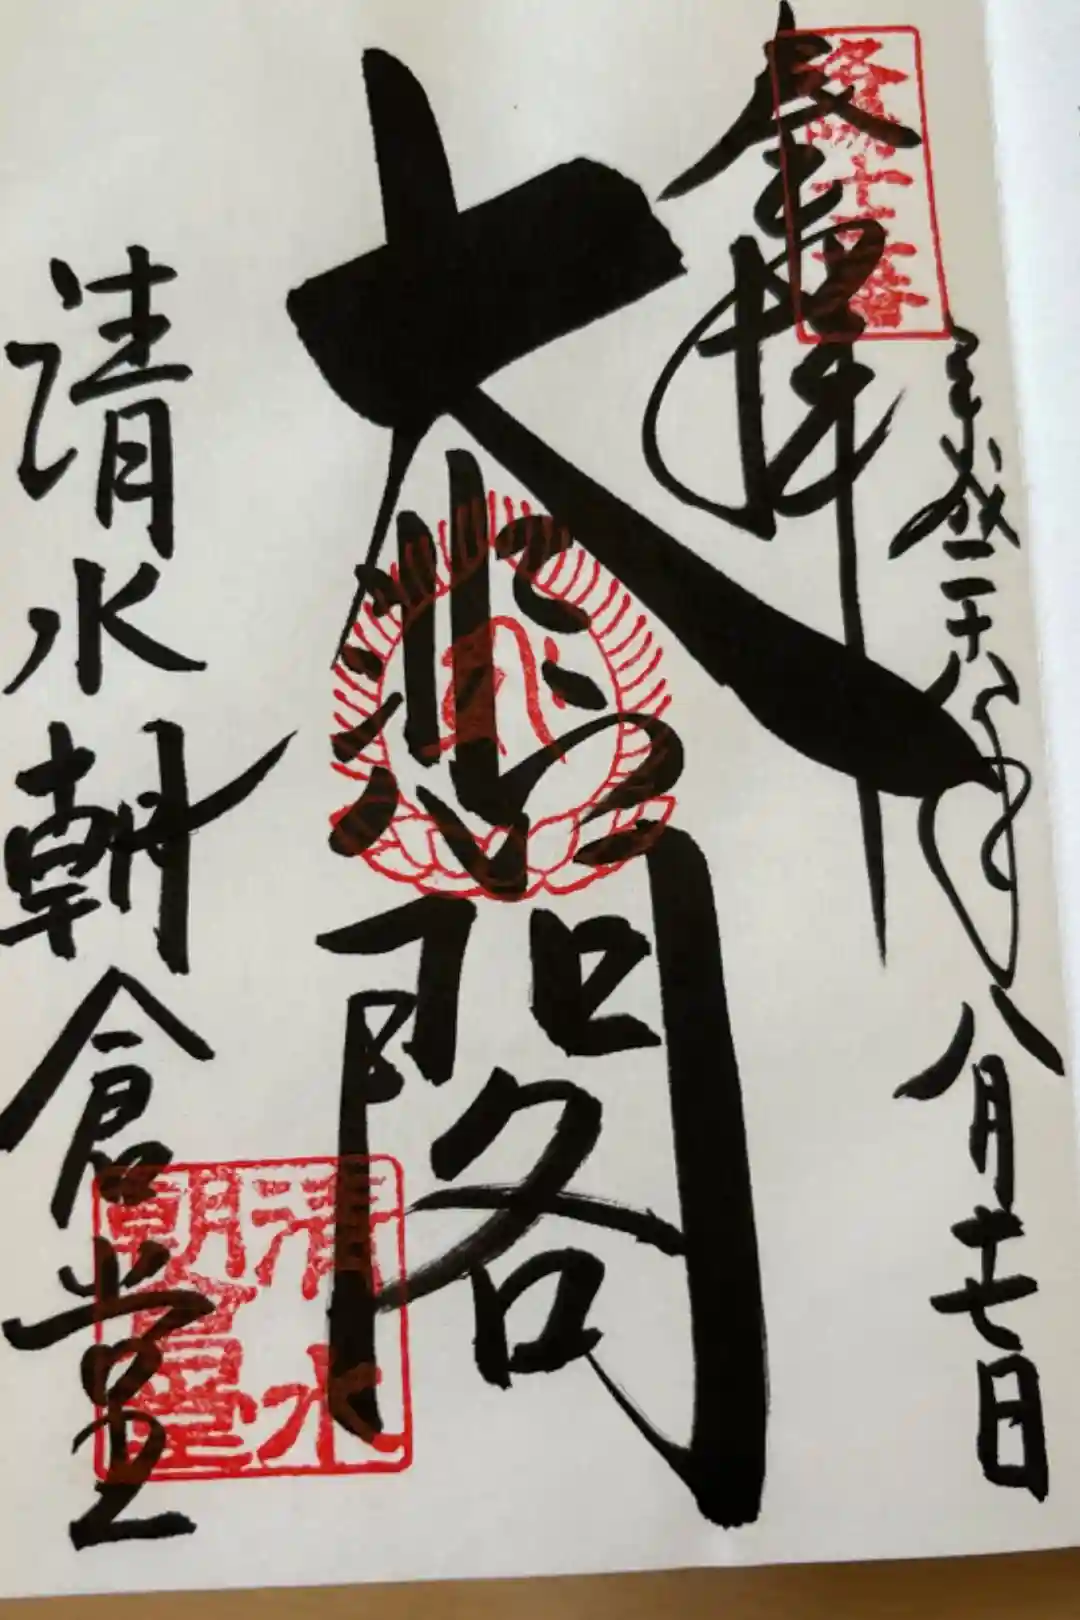 奉拝
洛陽十三番
平成二十八年八月十七日
大悲閣
清水朝倉堂
清水
朝倉堂